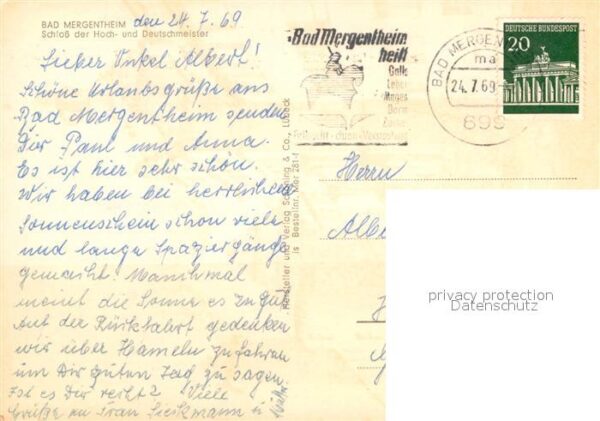 BAD MERGENTHEIM
Schloß der Hoch- und Deutschmeister
den 24.7.69
Lieber Onkel Albert!
Schöne Urlaubsgrüße aus
Bad Mergentheim senden
Dir Paul und Anna.
Es ist hier sehr schön.
Wir haben bei herrlichem
Sonnenschein schon viele
und lange Spaziergänge
gemacht. Manchmal
meint die Sonne es zu gut.
Auf der Rückfahrt gedenken
wir über Hameln zu fahren
um Dir guten Tag zu sagen.
Ist es Dir recht? Viele
Grüße an Frau
Hersteller und Verlag Schöning & Co., Lübeck
Bestellnr. Mer 281
Bad Mergentheim
heilt
Galle
Leber
Magen
Darm
Zucker
BAD MERGEN
24.7.69
699
DEUTSCHE BUNDESPOST
20
Herrn
Albe
privacy protection
Datenschutz